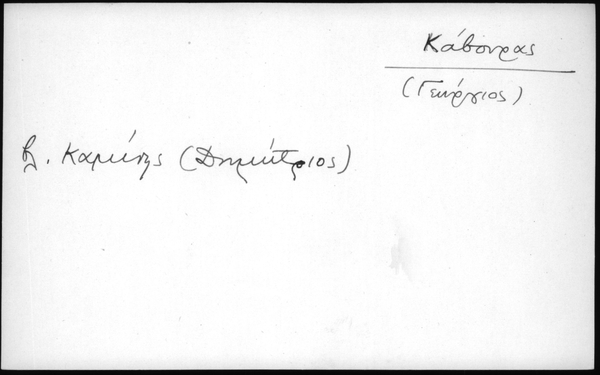 Κάβουρας
(Γεώργιος)
βλ. Καμίνης (Δημήτριος)